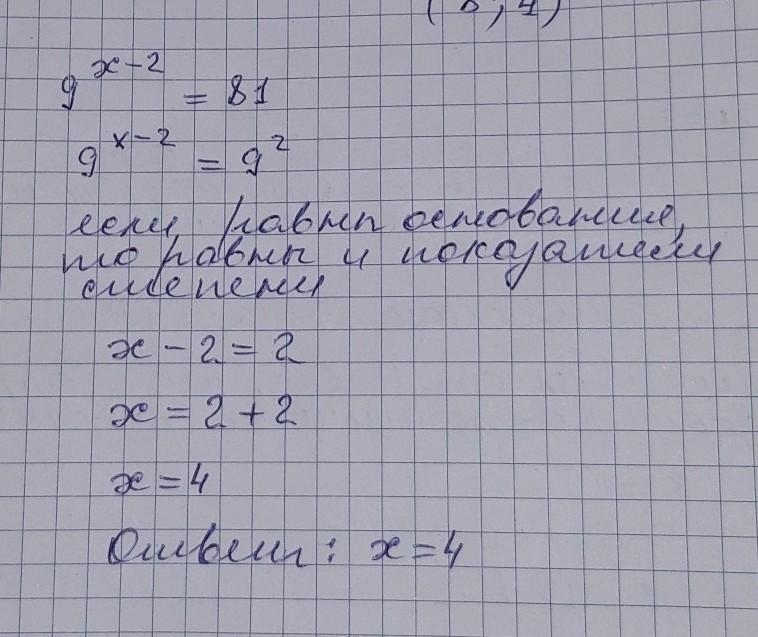 (3, 4)
9^{x-2} = 81
9^{x-2} = 9^2
если равны основание,
то равны и показатели
степени
x - 2 = 2
x = 2 + 2
x = 4
Ответ: x = 4